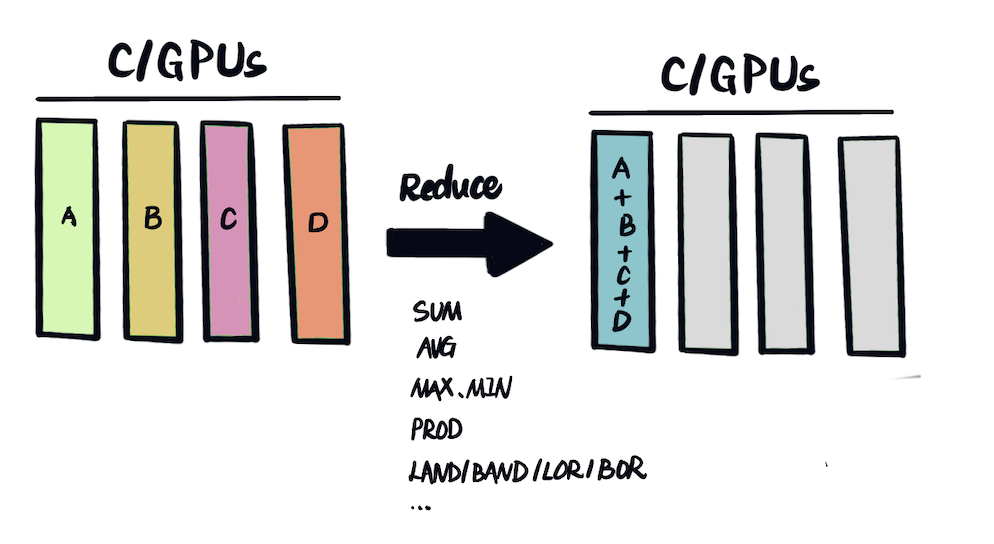 C/GPUs
A B C D
Reduce
SUM
AVG
MAX、MIN
PROD
LAND/BAND/LOR/BOR
...
C/GPUs
A
+
B
+
C
+
D